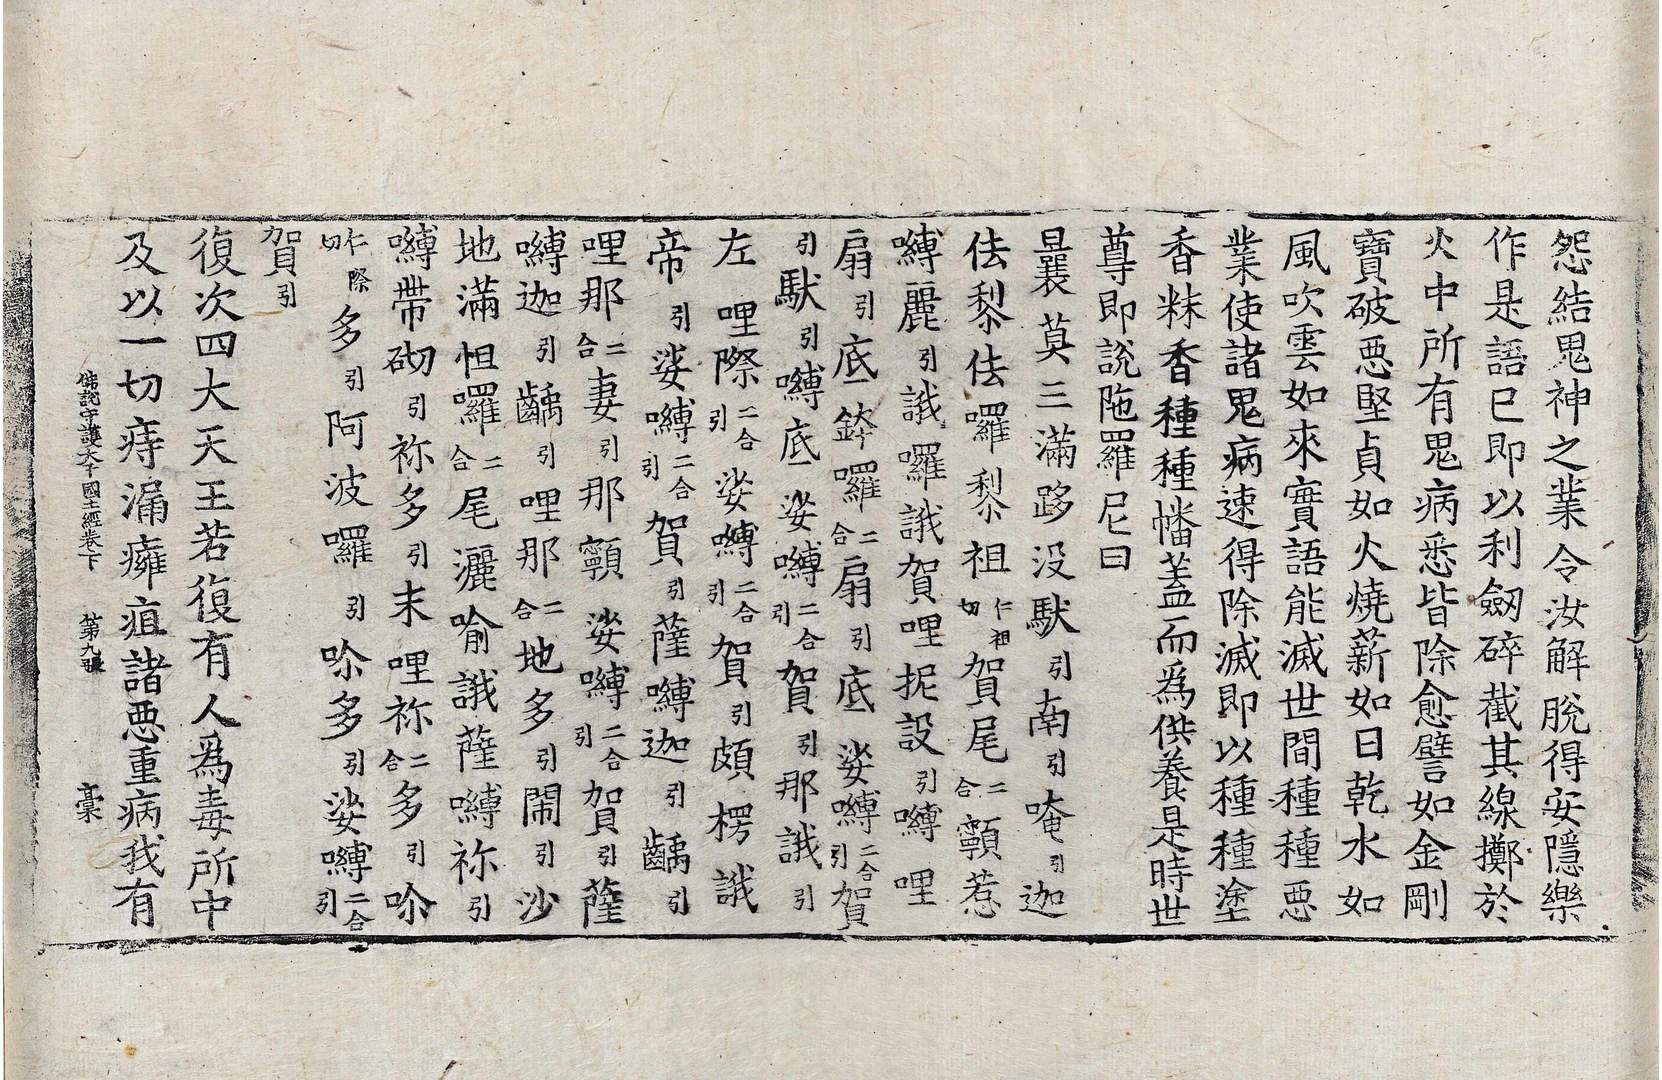 怨結鬼神之業令汝解脫得安隱樂
作是語已即以利劒碎截其線擲於
火中所有鬼病悉皆除愈譬如金剛
寶破惡堅貞如火燒薪如日乾水如
風吹雲如來實語能滅世間種種惡
業使諸鬼病速得除滅即以種種塗
香粖香種種幡蓋而爲供養是時世
尊即說陁羅尼曰
曩莫三滿跢沒馱引南引唵引迦
佉黎佉囉黎祖仁祖切賀尾二合顐惹
嚩麗引誐囉誐賀哩抳設引嚩哩
扇引底鉢囉二合扇引底娑嚩二合引賀
引馱引嚩底娑嚩二合引賀引那誐引
左哩際二合引娑嚩二合引賀引頗楞誐
帝引娑嚩二合引賀引薩嚩迦引齲引
哩那二合妻引那顐娑嚩二合引賀引薩
嚩迦引齲引哩那二合地多引閙引沙
地滿怛囉二合尾灑喻誐薩嚩祢引
嚩帶砌引祢多引末哩祢二合多引唹
仁際切多引阿波囉引唹多引娑嚩二合引
賀引
復次四大天王若復有人爲毒所中
及以一切痔漏癰疽諸惡重病我有
佛說守護大千國土經卷下 第九張 稾